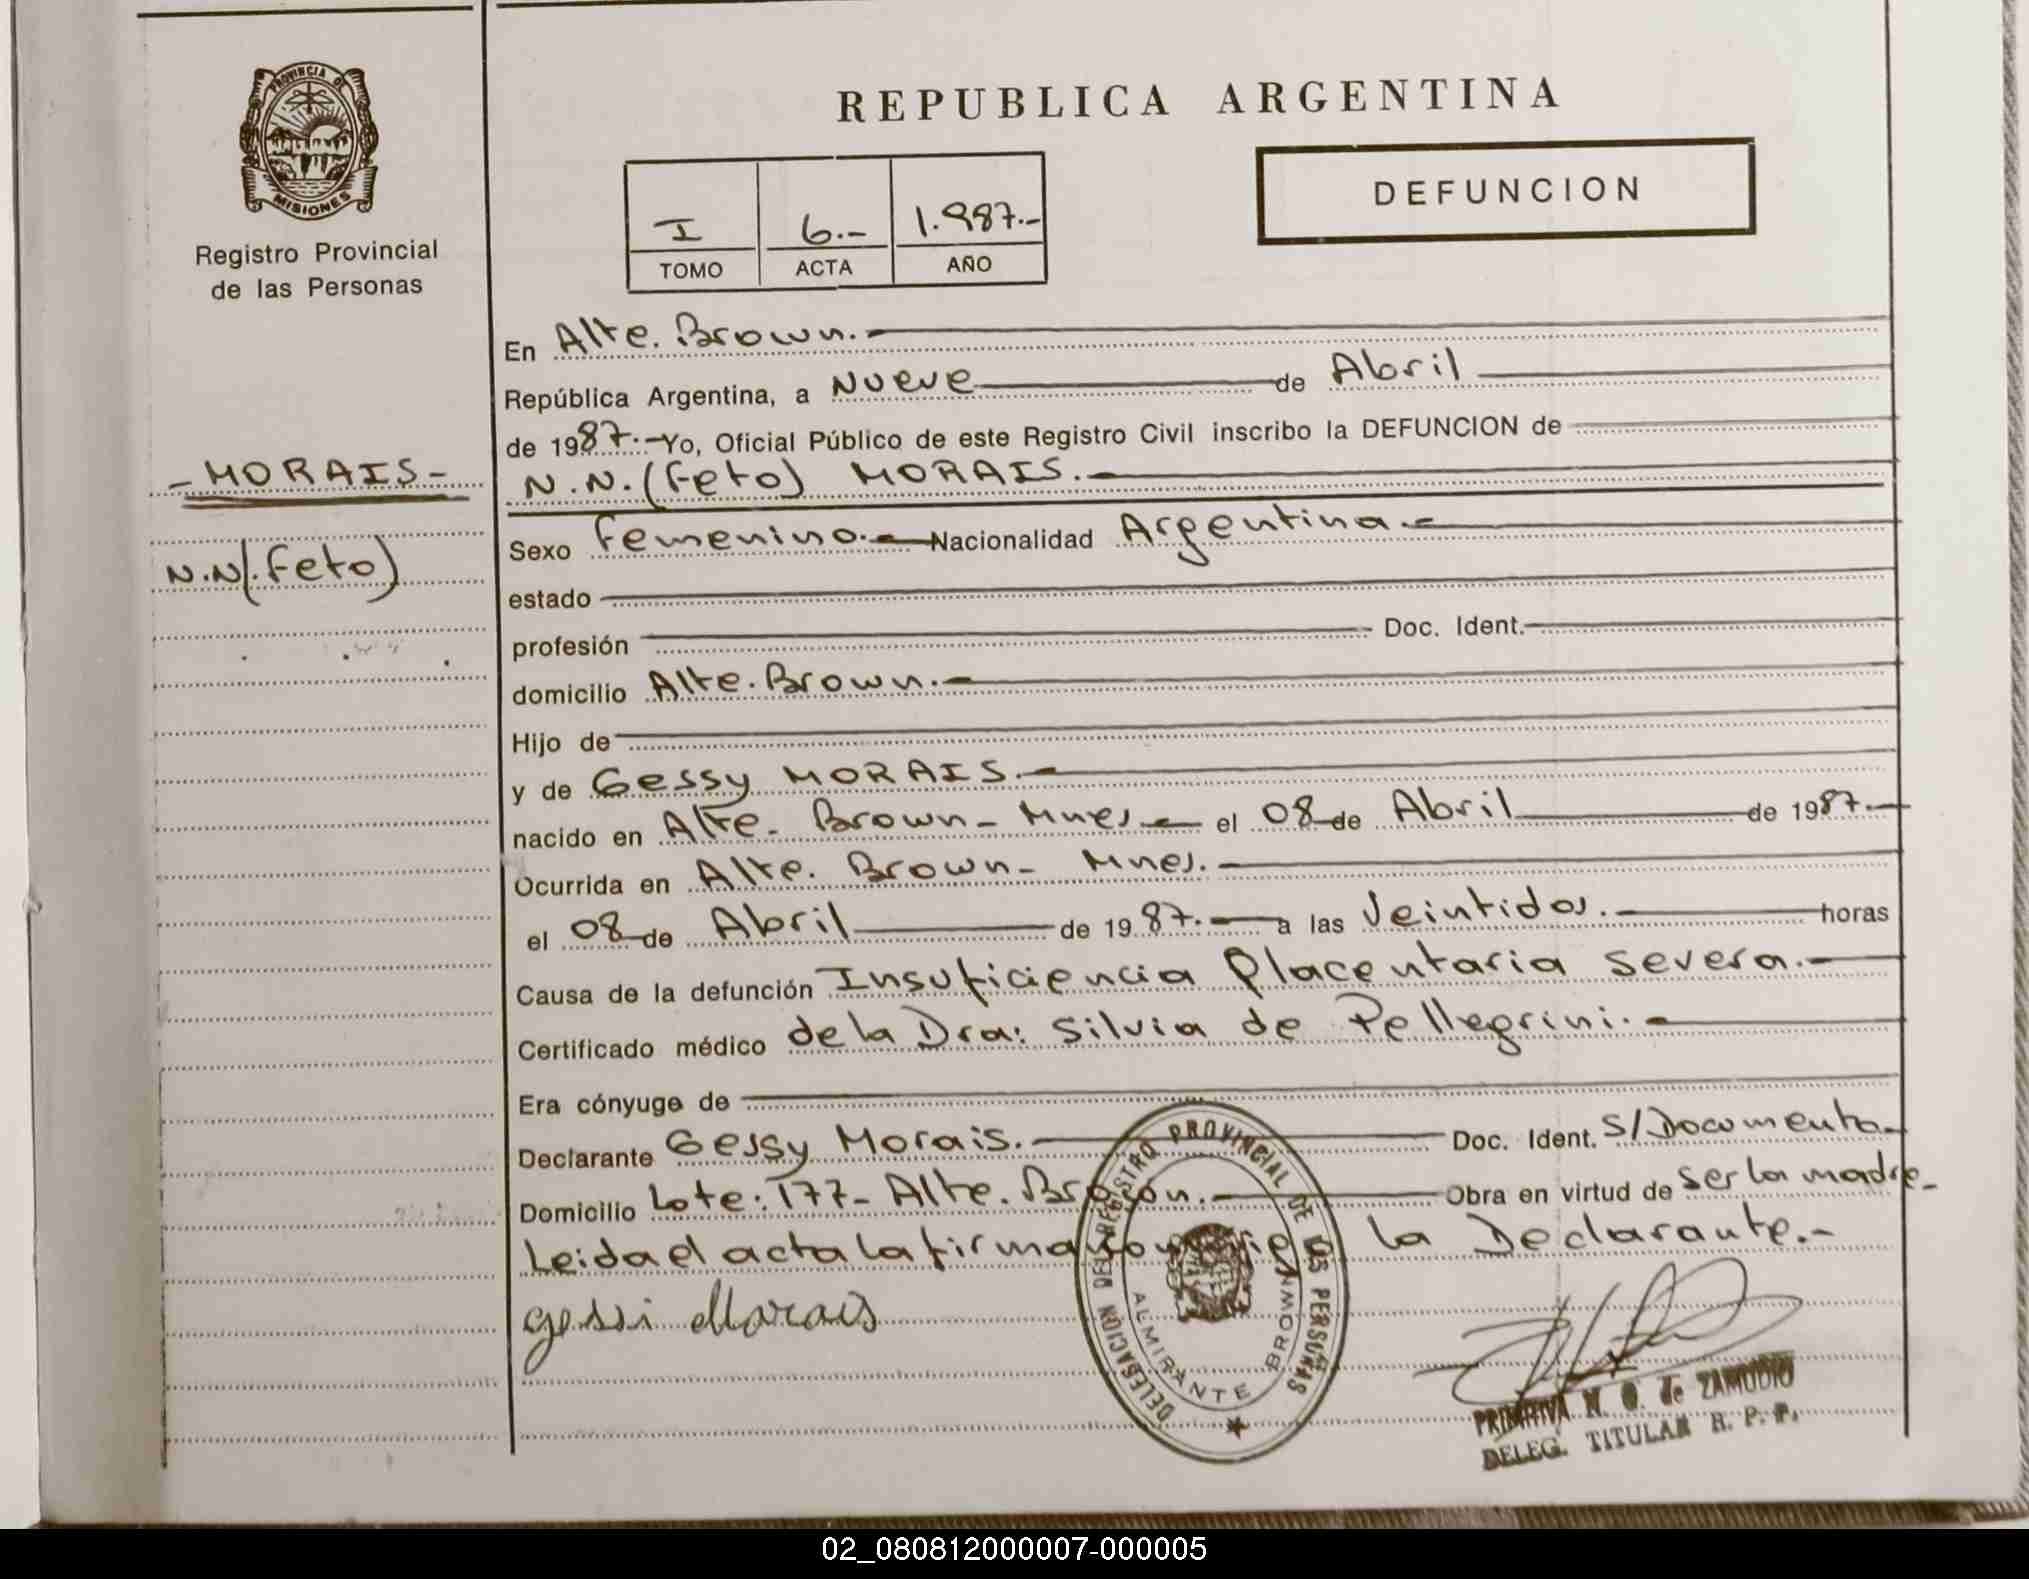 PROVINCIA DE
MISIONES
Registro Provincial
de las Personas
- MORAIS -
N.N(.Feto)
REPUBLICA ARGENTINA
DEFUNCION
I 6.- 1.987.-
TOMO ACTA AÑO
En Alte. Brown.-
República Argentina, a Nueve de Abril
de 1987.- Yo, Oficial Público de este Registro Civil inscribo la DEFUNCION de
N.N.(Feto) MORAIS.-
Sexo Femenino.- Nacionalidad Argentina.-
estado
profesión Doc. Ident.
domicilio Alte. Brown.-
Hijo de
y de Gessy MORAIS.-
nacido en Alte. Brown- Mnes.- el 08 de Abril de 1987.-
Ocurrida en Alte. Brown- Mnes.-
el 08 de Abril de 1987.- a las Veintidos.- horas
Causa de la defunción Insuficiencia Placentaria severa.-
Certificado médico de la Dra: Silvia de Pellegrini.-
Era cónyuge de
Declarante Gessy Morais.- Doc. Ident. S/Documento-
Domicilio Lote: 177- Alte. Brown.- Obra en virtud de ser la madre-
Leida el acta la firma la Declarante.-
Gessi Morais
DELEGACION DEL REGISTRO PROVINCIAL DE LAS PERSONAS
ALMIRANTE BROWN
PRIMITIVA N. O. de ZAMUDIO
DELEG. TITULAR R. P. P.
02_080812000007-000005